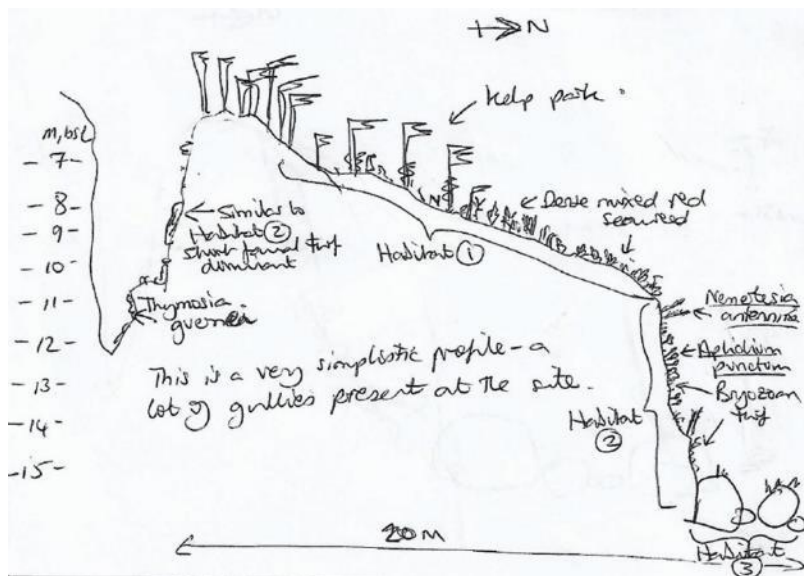 N
Kelp park.
m, bsl
- 7 -
- 8 -
- 9 -
- 10 -
- 11 -
- 12 -
- 13 -
- 14 -
- 15 -
Similar to
Habitat ②
faunal turf
dominant
Thymosia
guernei
Dense mixed red
seaweed
Habitat ①
Nemertesia
antennina
Aplidium
punctum
Bryozoan
turf
Habitat
②
This is a very simplistic profile - a
lot of gullies present at the site.
20 M
Habitat
③